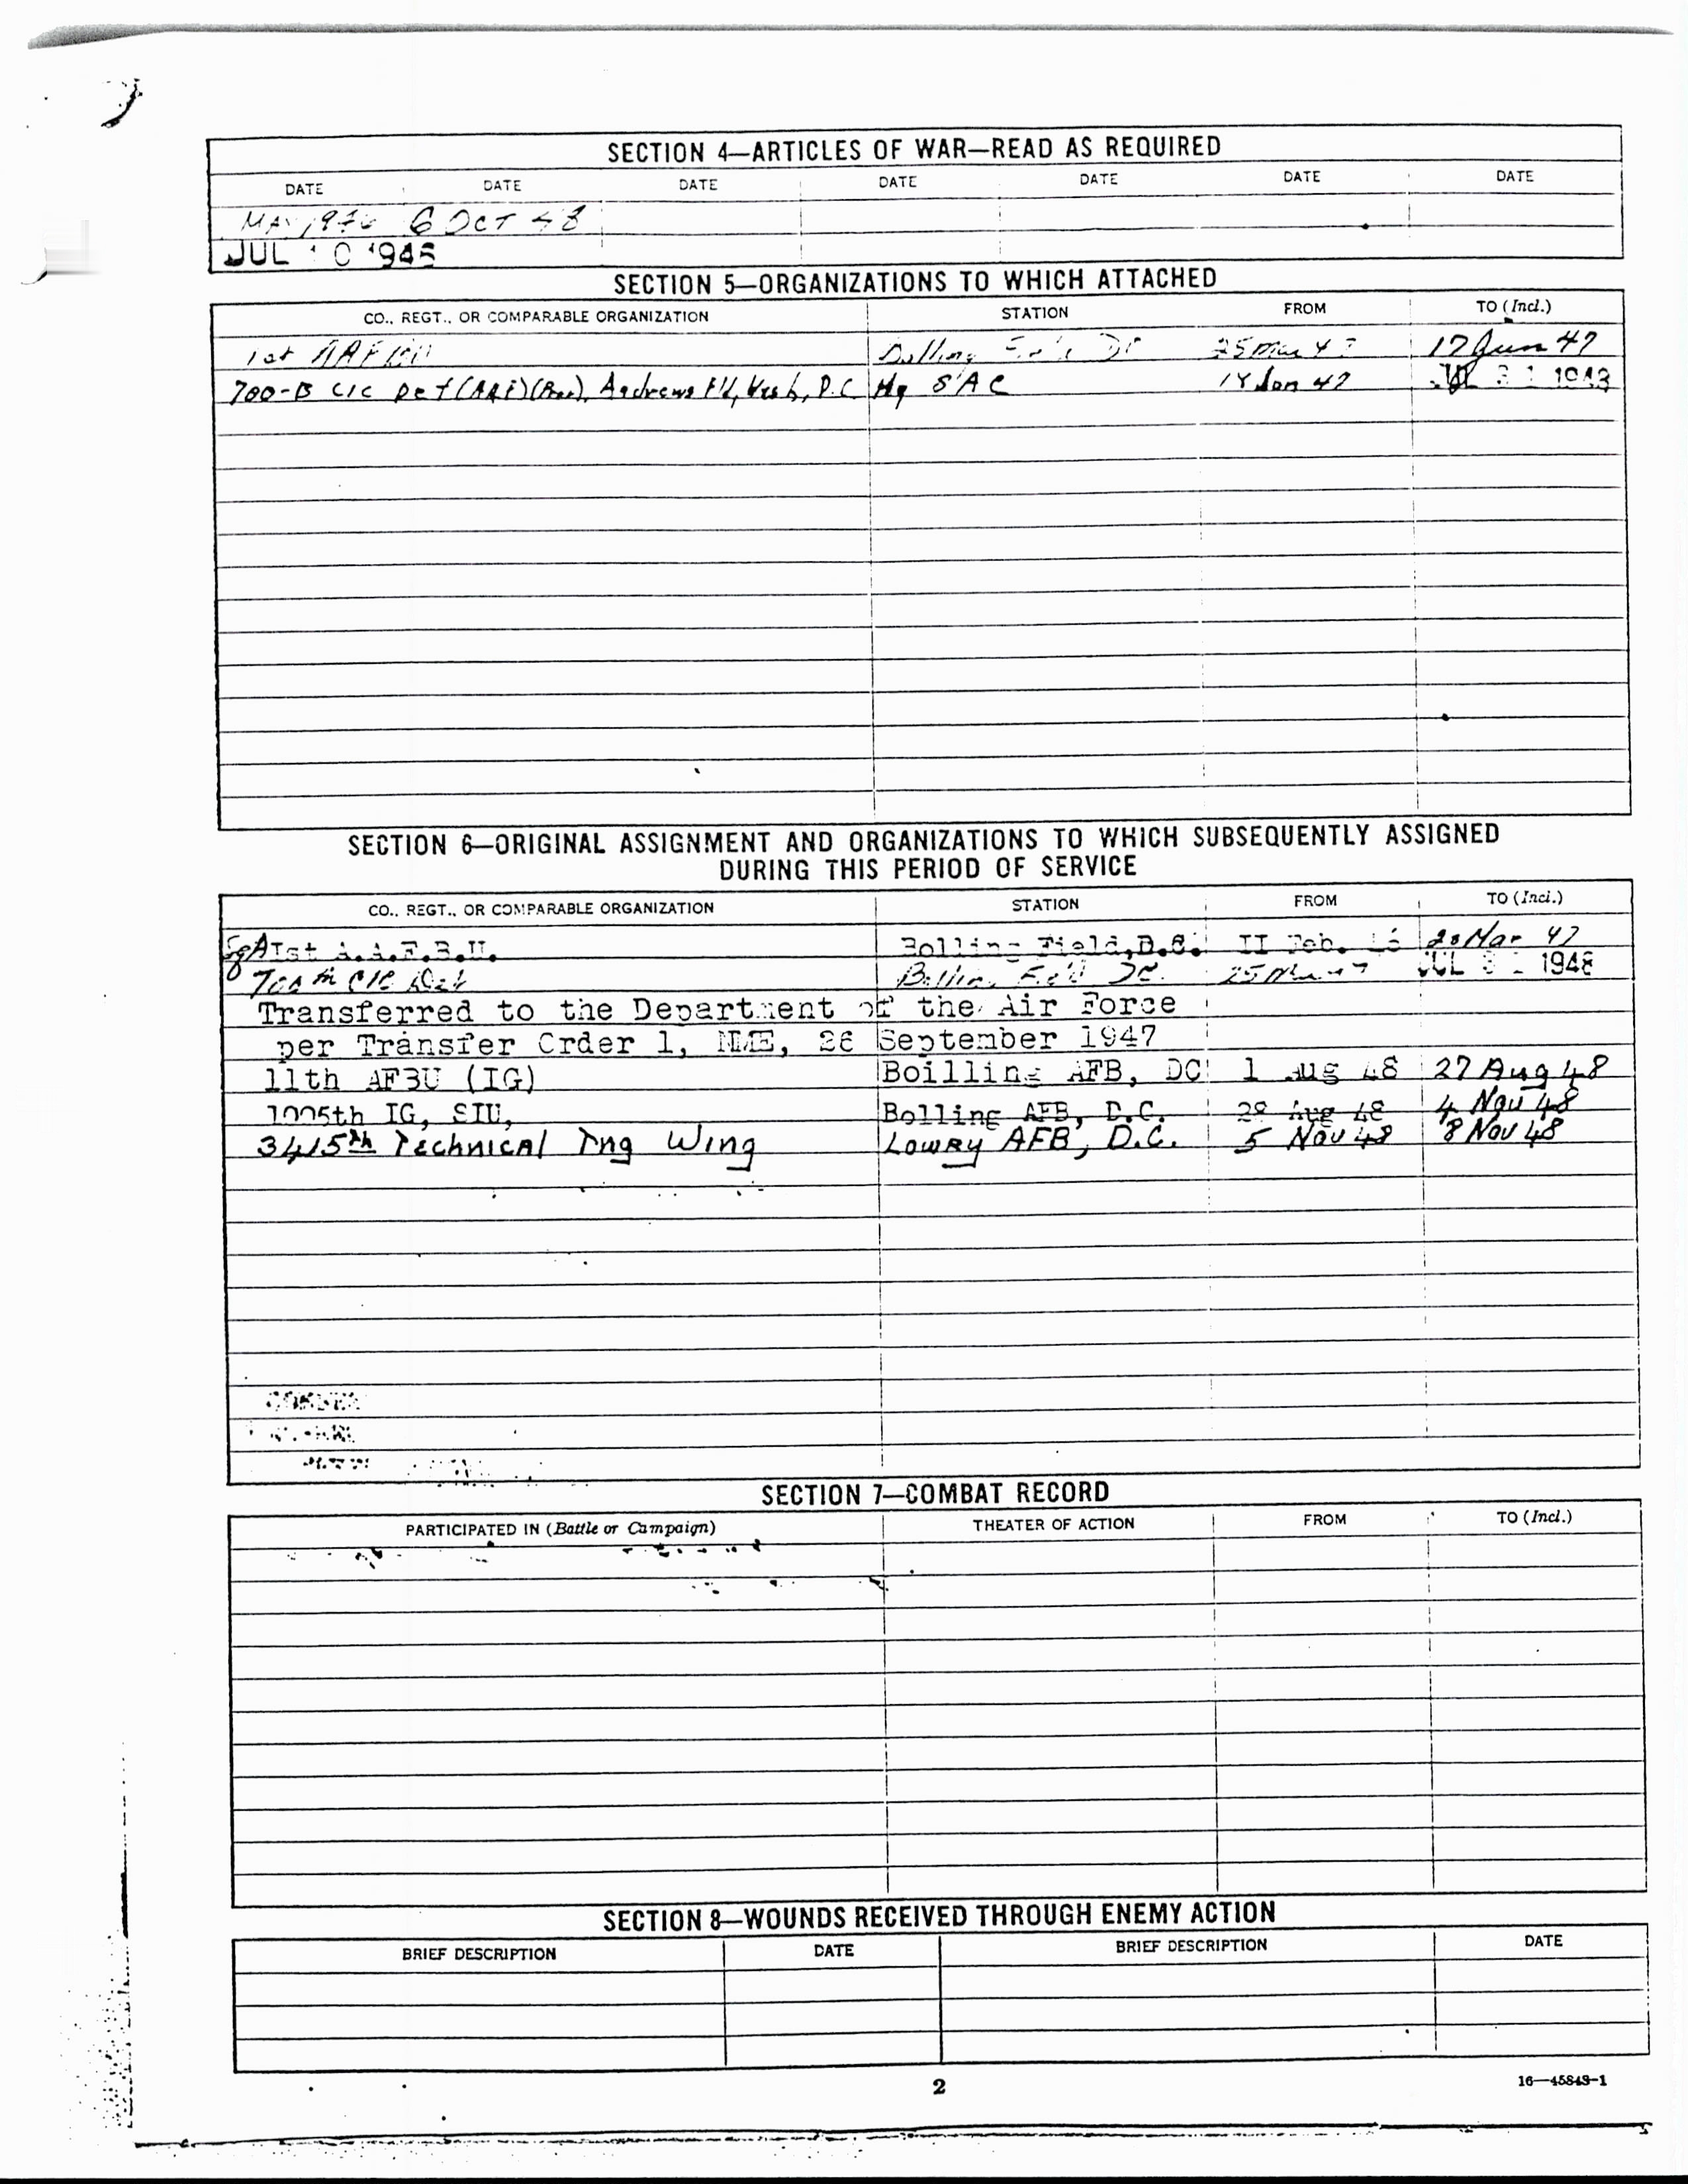 SECTION 4—ARTICLES OF WAR—READ AS REQUIRED
DATE DATE DATE DATE DATE DATE DATE
6 OCT 48
JUL 10 1946
SECTION 5—ORGANIZATIONS TO WHICH ATTACHED
CO., REGT., OR COMPARABLE ORGANIZATION STATION FROM TO (Incl.)
1st 17 Jun 47
700-B CIC Det (AAF) Andrews Fld, Wash, D.C Hq SAC 47
SECTION 6—ORIGINAL ASSIGNMENT AND ORGANIZATIONS TO WHICH SUBSEQUENTLY ASSIGNED
DURING THIS PERIOD OF SERVICE
CO., REGT., OR COMPARABLE ORGANIZATION STATION FROM TO (Incl.)
A.A.F.B.U. Bolling Field, D.C. II Feb. Mar 47
700th CIC Det 25 JUL 31 1948
Transferred to the Department of the Air Force
per Transfer Order 1, NME, 26 September 1947
11th AFBU (IG) Boilling AFB, DC 1 Aug 48 27 Aug 48
1005th IG, SIU, Bolling AFB, D.C. 28 Aug 48 4 Nov 48
3415th Technical Tng Wing Lowry AFB, D.C. 5 Nov 48 8 Nov 48
SECTION 7—COMBAT RECORD
PARTICIPATED IN (Battle or Campaign) THEATER OF ACTION FROM TO (Incl.)
SECTION 8—WOUNDS RECEIVED THROUGH ENEMY ACTION
BRIEF DESCRIPTION DATE BRIEF DESCRIPTION DATE
2
16—45843-1